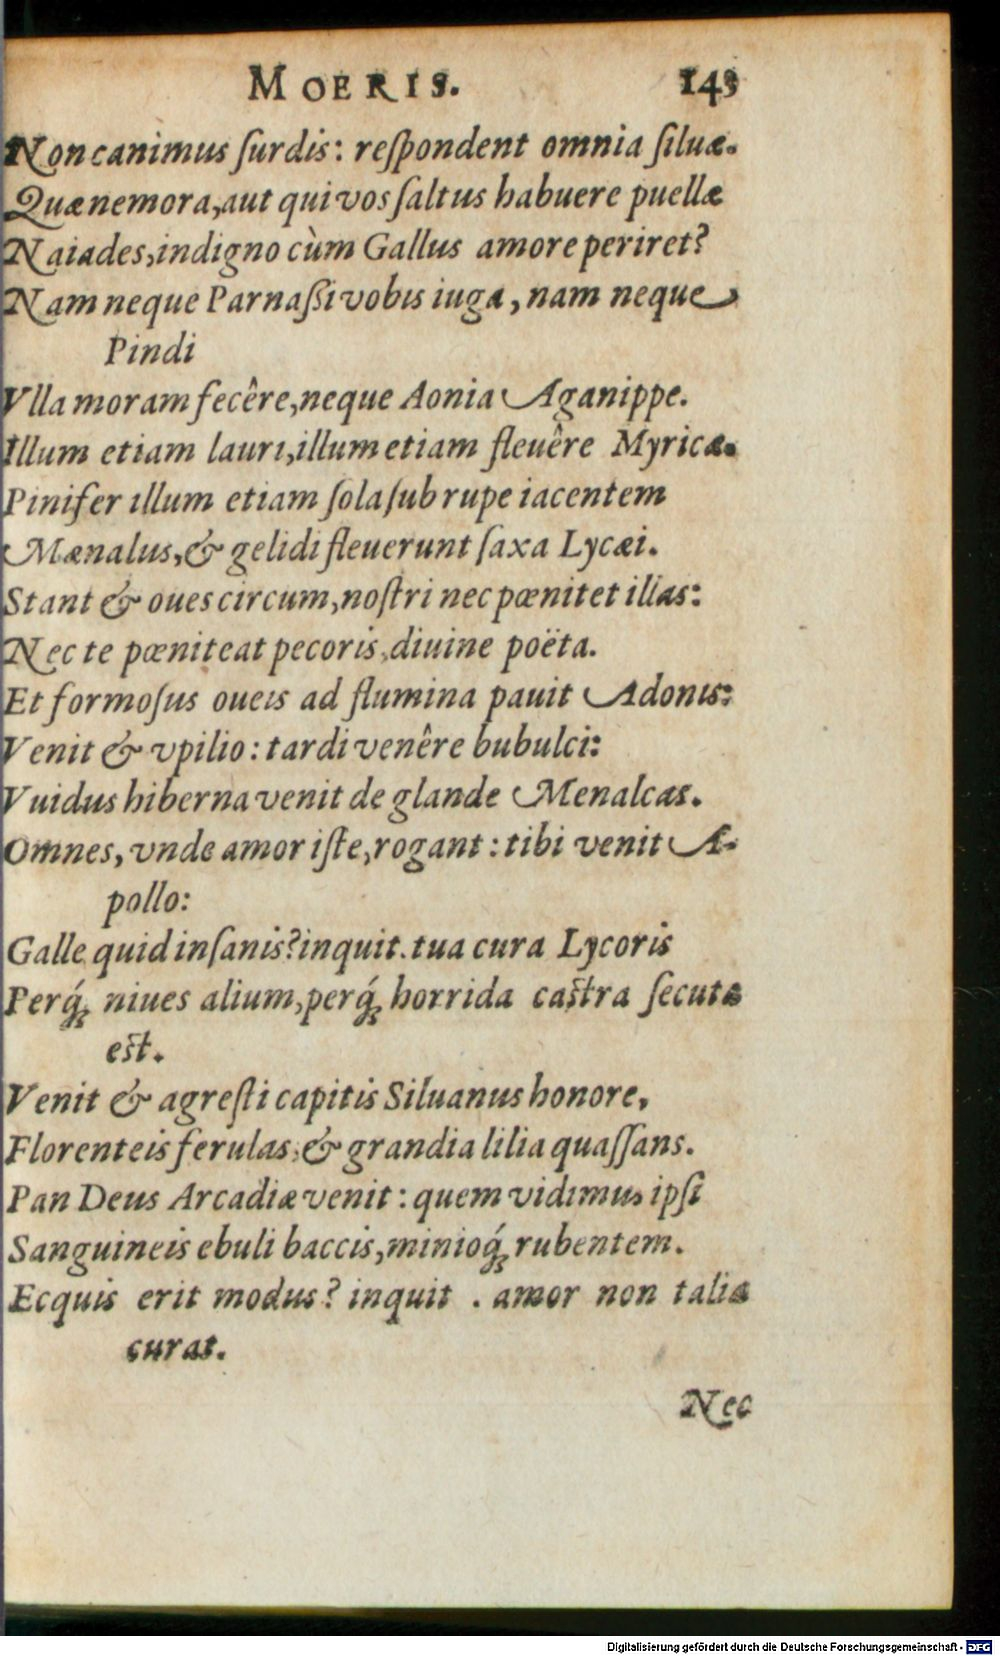 MOERIS. 143
Non canimus ſurdis: reſpondent omnia ſiluæ.
Quæ nemora, aut qui vos ſaltus habuere puellæ
Naiades, indigno cùm Gallus amore periret?
Nam neque Parnaßi vobis iuga, nam neque
Pindi
Vlla moram fecêre, neque Aonia Aganippe.
Illum etiam lauri, illum etiam fleuêre Myricæ.
Pinifer illum etiam ſola ſub rupe iacentem
Mænalus, & gelidi fleuerunt ſaxa Lycæi.
Stant & oues circum, noſtri nec pœnitet illas:
Nec te pœniteat pecoris, diuine poëta.
Et formoſus oueis ad flumina pauit Adonis:
Venit & vpilio: tardi venêre bubulci:
Vuidus hiberna venit de glande Menalcas.
Omnes, vnde amor iſte, rogant: tibi venit A-
pollo:
Galle quid inſanis? inquit. tua cura Lycoris
Perq́; niues alium, perq́; horrida caſtra ſecuta
eſt.
Venit & agreſti capitis Siluanus honore,
Florenteis ferulas, & grandia lilia quaſſans.
Pan Deus Arcadiæ venit: quem vidimus ipſi
Sanguineis ebuli baccis, minioq́; rubentem.
Ecquis erit modus? inquit . amor non talia
curat.
Nec
Digitalisierung gefördert durch die Deutsche Forschungsgemeinschaft - DFG